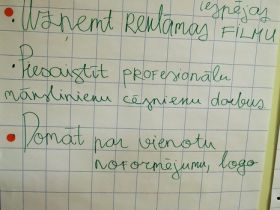 iespējas
• Uzņemt REKLĀMAS FILMU
• Piesaistīt PROFESIONĀLU
mākslinienu cēsnienu darbus
• Domāt par vienotu
noformējumu, logo